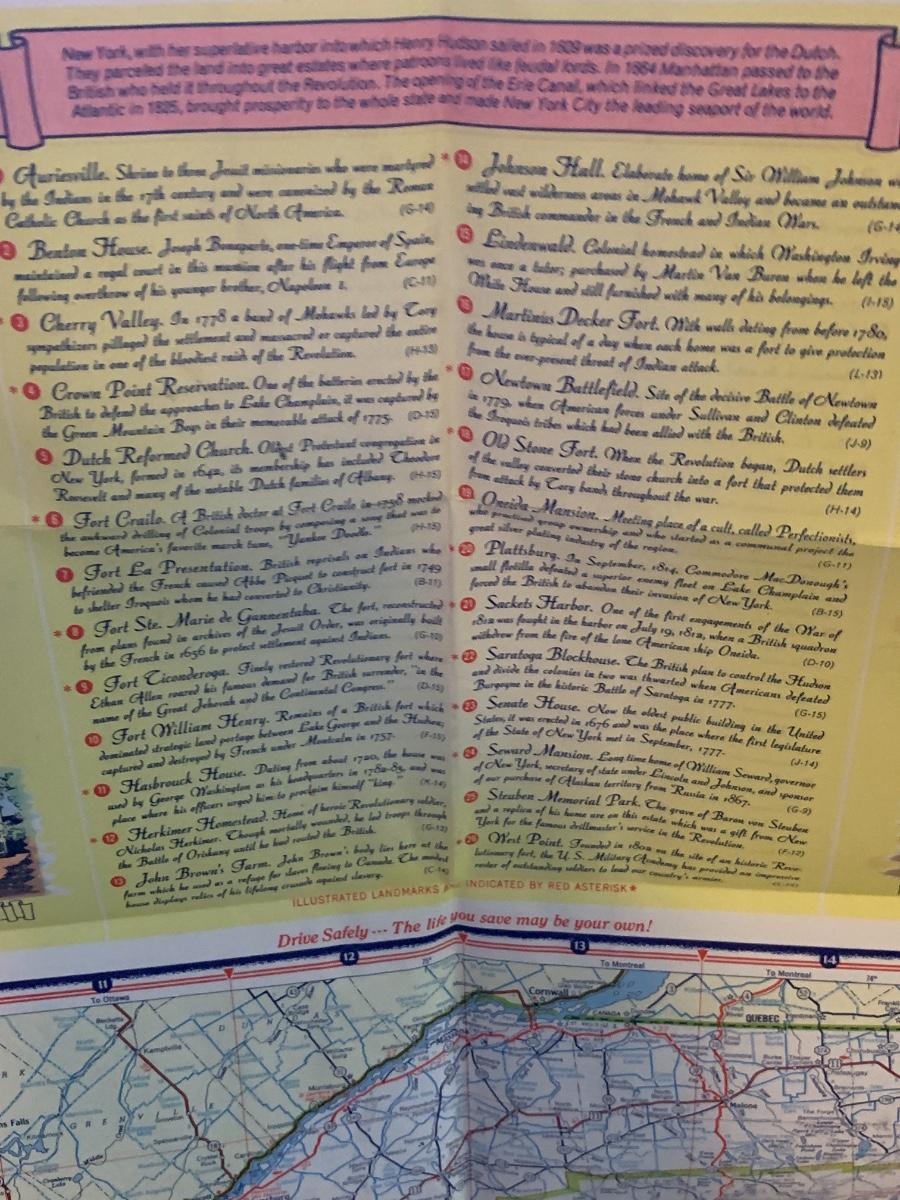 New York, with her superlative harbor into which Henry Hudson sailed in 1609 was a prized discovery for the Dutch.
They parceled the land into great estates where patroons lived like feudal lords. In 1664 Manhattan passed to the
British who held it throughout the Revolution. The opening of the Erie Canal, which linked the Great Lakes to the
Atlantic in 1825, brought prosperity to the whole state and made New York City the leading seaport of the world.
Auriesville. Shrine to three Jesuit missionaries who were martyred
by the Indians in the 17th century and were canonized by the Roman
Catholic Church as the first saints of North America. (G-14)
2 Benton House. Joseph Bonaparte, one-time Emperor of Spain,
maintained a regal court in this mansion after his flight from Europe
following overthrow of his younger brother, Napoleon I. (C-11)
* 3 Cherry Valley. In 1778 a band of Mohawks led by Tory
sympathizers pillaged the settlement and massacred or captured the entire
population in one of the bloodiest raids of the Revolution. (H-13)
* 4 Crown Point Reservation. One of the batteries erected by the
British to defend the approaches to Lake Champlain, it was captured by
the Green Mountain Boys in their memorable attack of 1775. (D-15)
5 Dutch Reformed Church. Oldest Protestant congregation in
New York, formed in 1642, its membership has included Theodore
Roosevelt and many of the notable Dutch families of Albany. (H-15)
* 6 Fort Crailo. A British doctor at Fort Crailo in 1758 mocked
the awkward drilling of Colonial troops by composing a song that was to
become America's favorite march tune, "Yankee Doodle." (H-15)
7 Fort La Presentation. British reprisals on Indians who
befriended the French caused Abbe Picquet to construct fort in 1749
to shelter Iroquois whom he had converted to Christianity. (B-11)
* 8 Fort Ste. Marie de Gannentaha. The fort, reconstructed
from plans found in archives of the Jesuit Order, was originally built
by the French in 1656 to protect settlement against Indians. (G-10)
* 9 Fort Ticonderoga. Finely restored Revolutionary fort where
Ethan Allen roared his famous demand for British surrender, "in the
name of the Great Jehovah and the Continental Congress." (D-15)
10 Fort William Henry. Remains of a British fort which
dominated strategic land portage between Lake George and the Hudson;
captured and destroyed by French under Montcalm in 1757. (F-15)
* 11 Hasbrouck House. Dating from about 1720, the house was
used by George Washington as his headquarters in 1782-83, and was
place where his officers urged him to proclaim himself "king." (K-14)
* 12 Herkimer Homestead. Home of heroic Revolutionary soldier,
Nicholas Herkimer. Though mortally wounded, he led troops through
the Battle of Oriskany until he had routed the British. (G-13)
13 John Brown's Farm. John Brown's body lies here at the
farm which he used as a refuge for slaves fleeing to Canada. The modest
house displays relics of his lifelong crusade against slavery.
* 14 Johnson Hall. Elaborate home of Sir William Johnson
settled vast wilderness areas in Mohawk Valley and became an
ing British commander in the French and Indian Wars. (G-14
15 Lindenwald. Colonial homestead in which Washington Irving
was once a tutor; purchased by Martin Van Buren when he left the
White House and still furnished with many of his belongings. (I-15)
16 Martinius Decker Fort. With walls dating from before 1780,
the house is typical of a day when each home was a fort to give protection
from the ever-present threat of Indian attack. (L-13)
* 17 Newtown Battlefield. Site of the decisive Battle of Newtown
in 1779, when American forces under Sullivan and Clinton defeated
the Iroquois tribes which had been allied with the British. (J-9)
* 18 Old Stone Fort. When the Revolution began, Dutch settlers
of the valley converted their stone church into a fort that protected them
from attack by Tory bands throughout the war. (H-14)
19 Oneida Mansion. Meeting place of a cult, called Perfectionists,
who practised group ownership and who started as a communal project the
great silver plating industry of the region. (G-11)
* 20 Plattsburg. In September, 1814, Commodore MacDonough's
small flotilla defeated a superior enemy fleet on Lake Champlain and
forced the British to abandon their invasion of New York. (B-15)
* 21 Sackets Harbor. One of the first engagements of the War of
1812 was fought in the harbor on July 19, 1812, when a British squadron
withdrew from the fire of the lone American ship Oneida. (D-10)
* 22 Saratoga Blockhouse. The British plan to control the Hudson
and divide the colonies in two was thwarted when Americans defeated
Burgoyne in the historic Battle of Saratoga in 1777. (G-15)
* 23 Senate House. Now the oldest public building in the United
States, it was erected in 1676 and was the place where the first legislature
of the State of New York met in September, 1777. (J-14)
* 24 Seward Mansion. Long time home of William Seward, governor
of New York, secretary of state under Lincoln and Johnson, and sponsor
of our purchase of Alaskan territory from Russia in 1867. (G-9)
25 Steuben Memorial Park. The grave of Baron von Steuben
and a replica of his home are on this estate which was a gift from New
York for the famous drillmaster's service in the Revolution. (F-12)
* 26 West Point. Founded in 1802 on the site of an historic Revo-
lutionary fort, the U. S. Military Academy has provided an impressive
roster of outstanding soldiers to lead our country's armies.
ILLUSTRATED LANDMARKS ARE INDICATED BY RED ASTERISK *
Drive Safely --- The life you save may be your own!
11
12
13
14
To Ottawa
75°
To Montreal
To Montreal
74°
Cornwall
CANADA
QUEBEC
Kemptville
Malone
Chateaugay
GRENVILLE